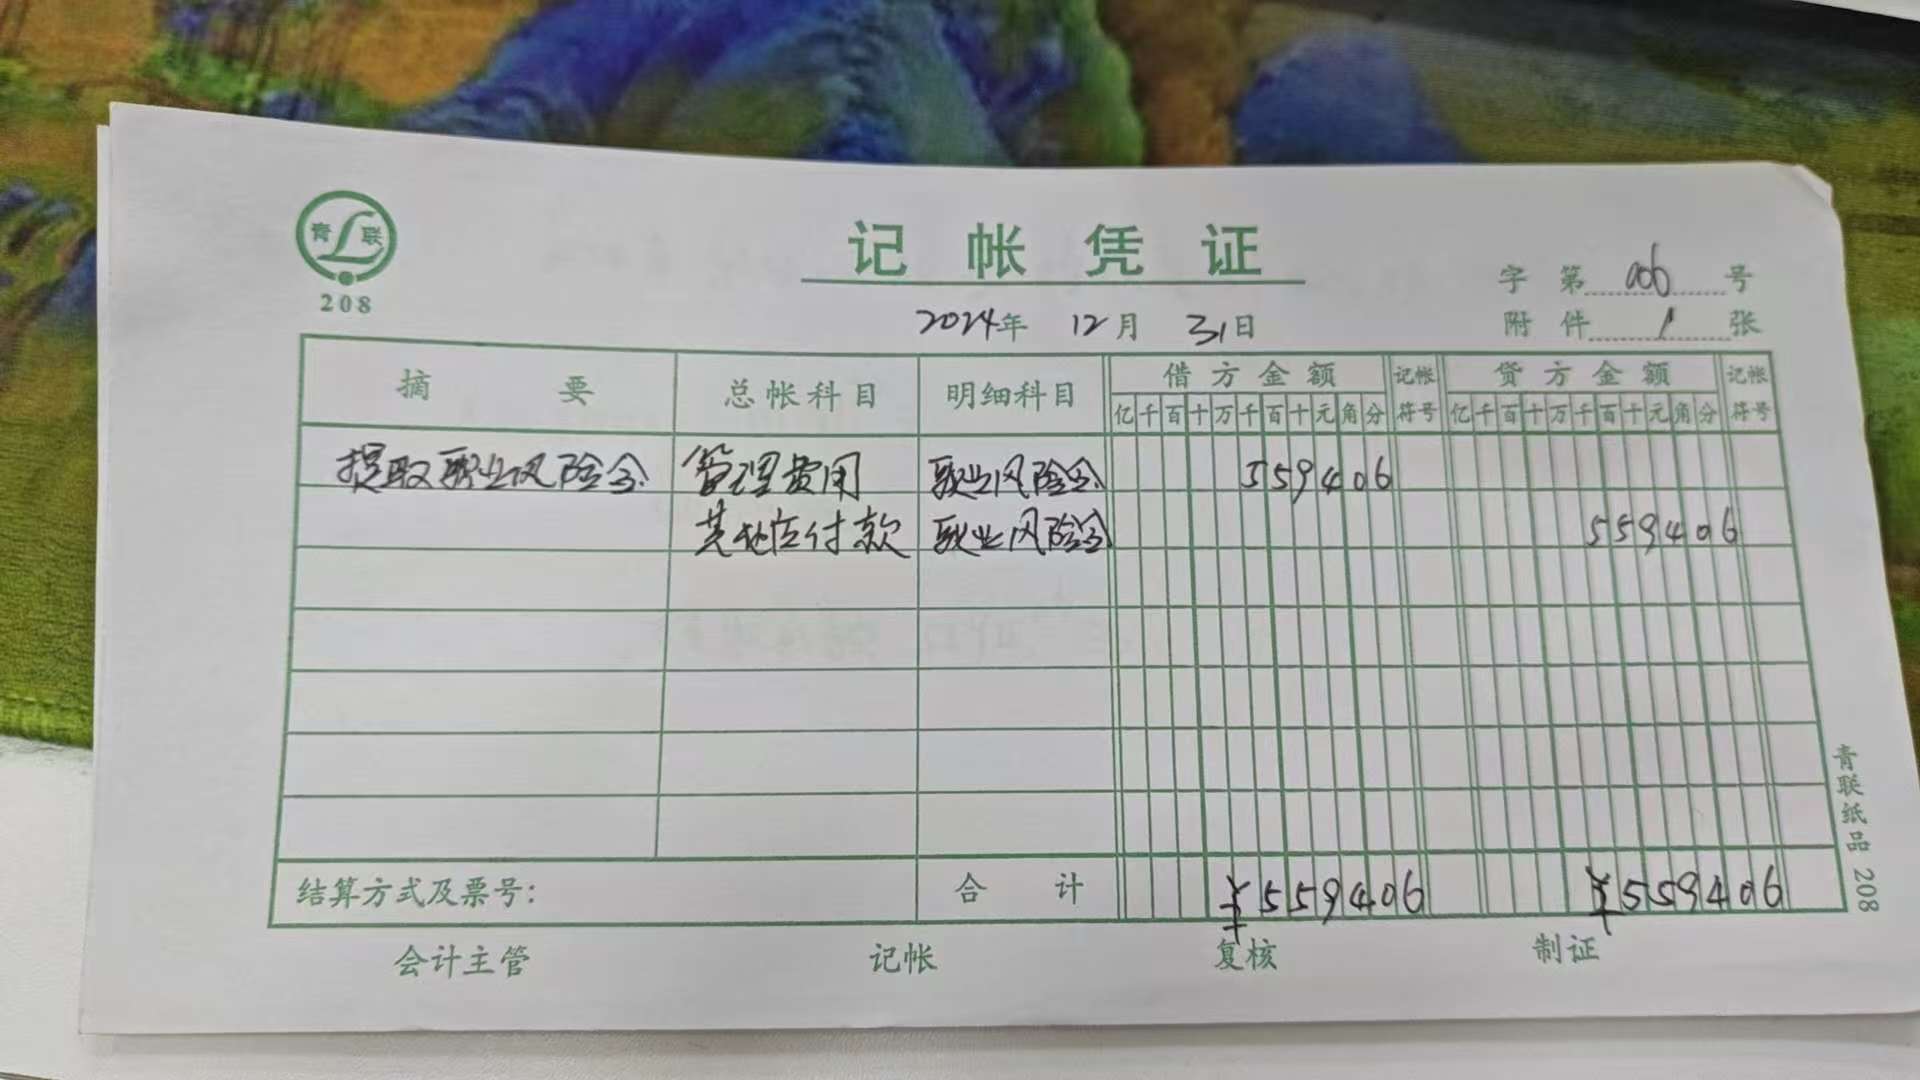 青 联
208
记帐凭证
字 第 006 号
2024年 12月 31日
附件 1 张
摘 要 总帐科目 明细科目 借方金额 记帐符号 贷方金额 记帐符号
亿千百十万千百十元角分 亿千百十万千百十元角分
提取职业风险金 管理费用 职业风险金 559406
其他应付款 职业风险金 559406
结算方式及票号: 合 计 ¥559406 ¥559406
会计主管 记帐 复核 制证
青联纸品 208